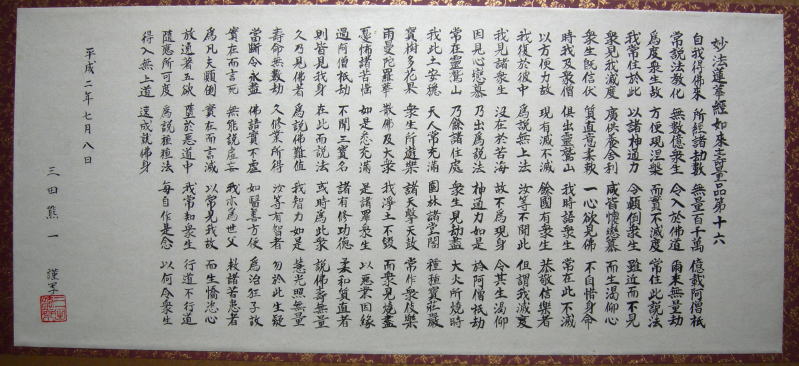 妙法蓮華經如來壽量品第十六
自我得佛來 所經諸劫數 無量百千萬 億載阿僧祇
常說法教化 無數億衆生 令入於佛道 爾來無量劫
為度衆生故 方便現涅槃 而實不滅度 常住此說法
我常住於此 以諸神通力 令顛倒衆生 雖近而不見
衆見我滅度 廣供養舍利 咸皆懷戀慕 而生渴仰心
衆生既信伏 質直意柔軟 一心欲見佛 不自惜身命
時我及衆僧 俱出靈鷲山 我時語衆生 常在此不滅
以方便力故 現有滅不滅 餘國有衆生 恭敬信樂者
我復於彼中 為說無上法 汝等不聞此 但謂我滅度
我見諸衆生 沒在於苦海 故不為現身 令其生渴仰
因其心戀慕 乃出為說法 神通力如是 於阿僧祇劫
常在靈鷲山 及餘諸住處 衆生見劫盡 大火所燒時
我此土安穏 天人常充滿 園林諸堂閣 種種寶莊嚴
寶樹多花菓 衆生所遊樂 諸天擊天鼓 常作衆伎樂
雨曼陀羅華 散佛及大衆 我淨土不毀 而衆見燒盡
憂怖諸苦惱 如是悉充滿 是諸罪衆生 以惡業因緣
過阿僧祇劫 不聞三寶名 諸有修功德 柔和質直者
則皆見我身 在此而說法 或時為此衆 說佛壽無量
久乃見佛者 為說佛難值 我智力如是 慧光照無量
壽命無數劫 久修業所得 汝等有智者 勿於此生疑
當斷令永盡 佛語實不虛 如醫善方便 為治狂子故
實在而言死 無能說虛妄 我亦為世父 救諸苦患者
為凡夫顛倒 實在而言滅 以常見我故 而生憍恣心
放逸著五欲 墮於惡道中 我常知衆生 行道不行道
隨應所可度 為說種種法 每自作是念 以何令衆生
得入無上道 速成就佛身
平成二年七月八日
三田熊一 謹写